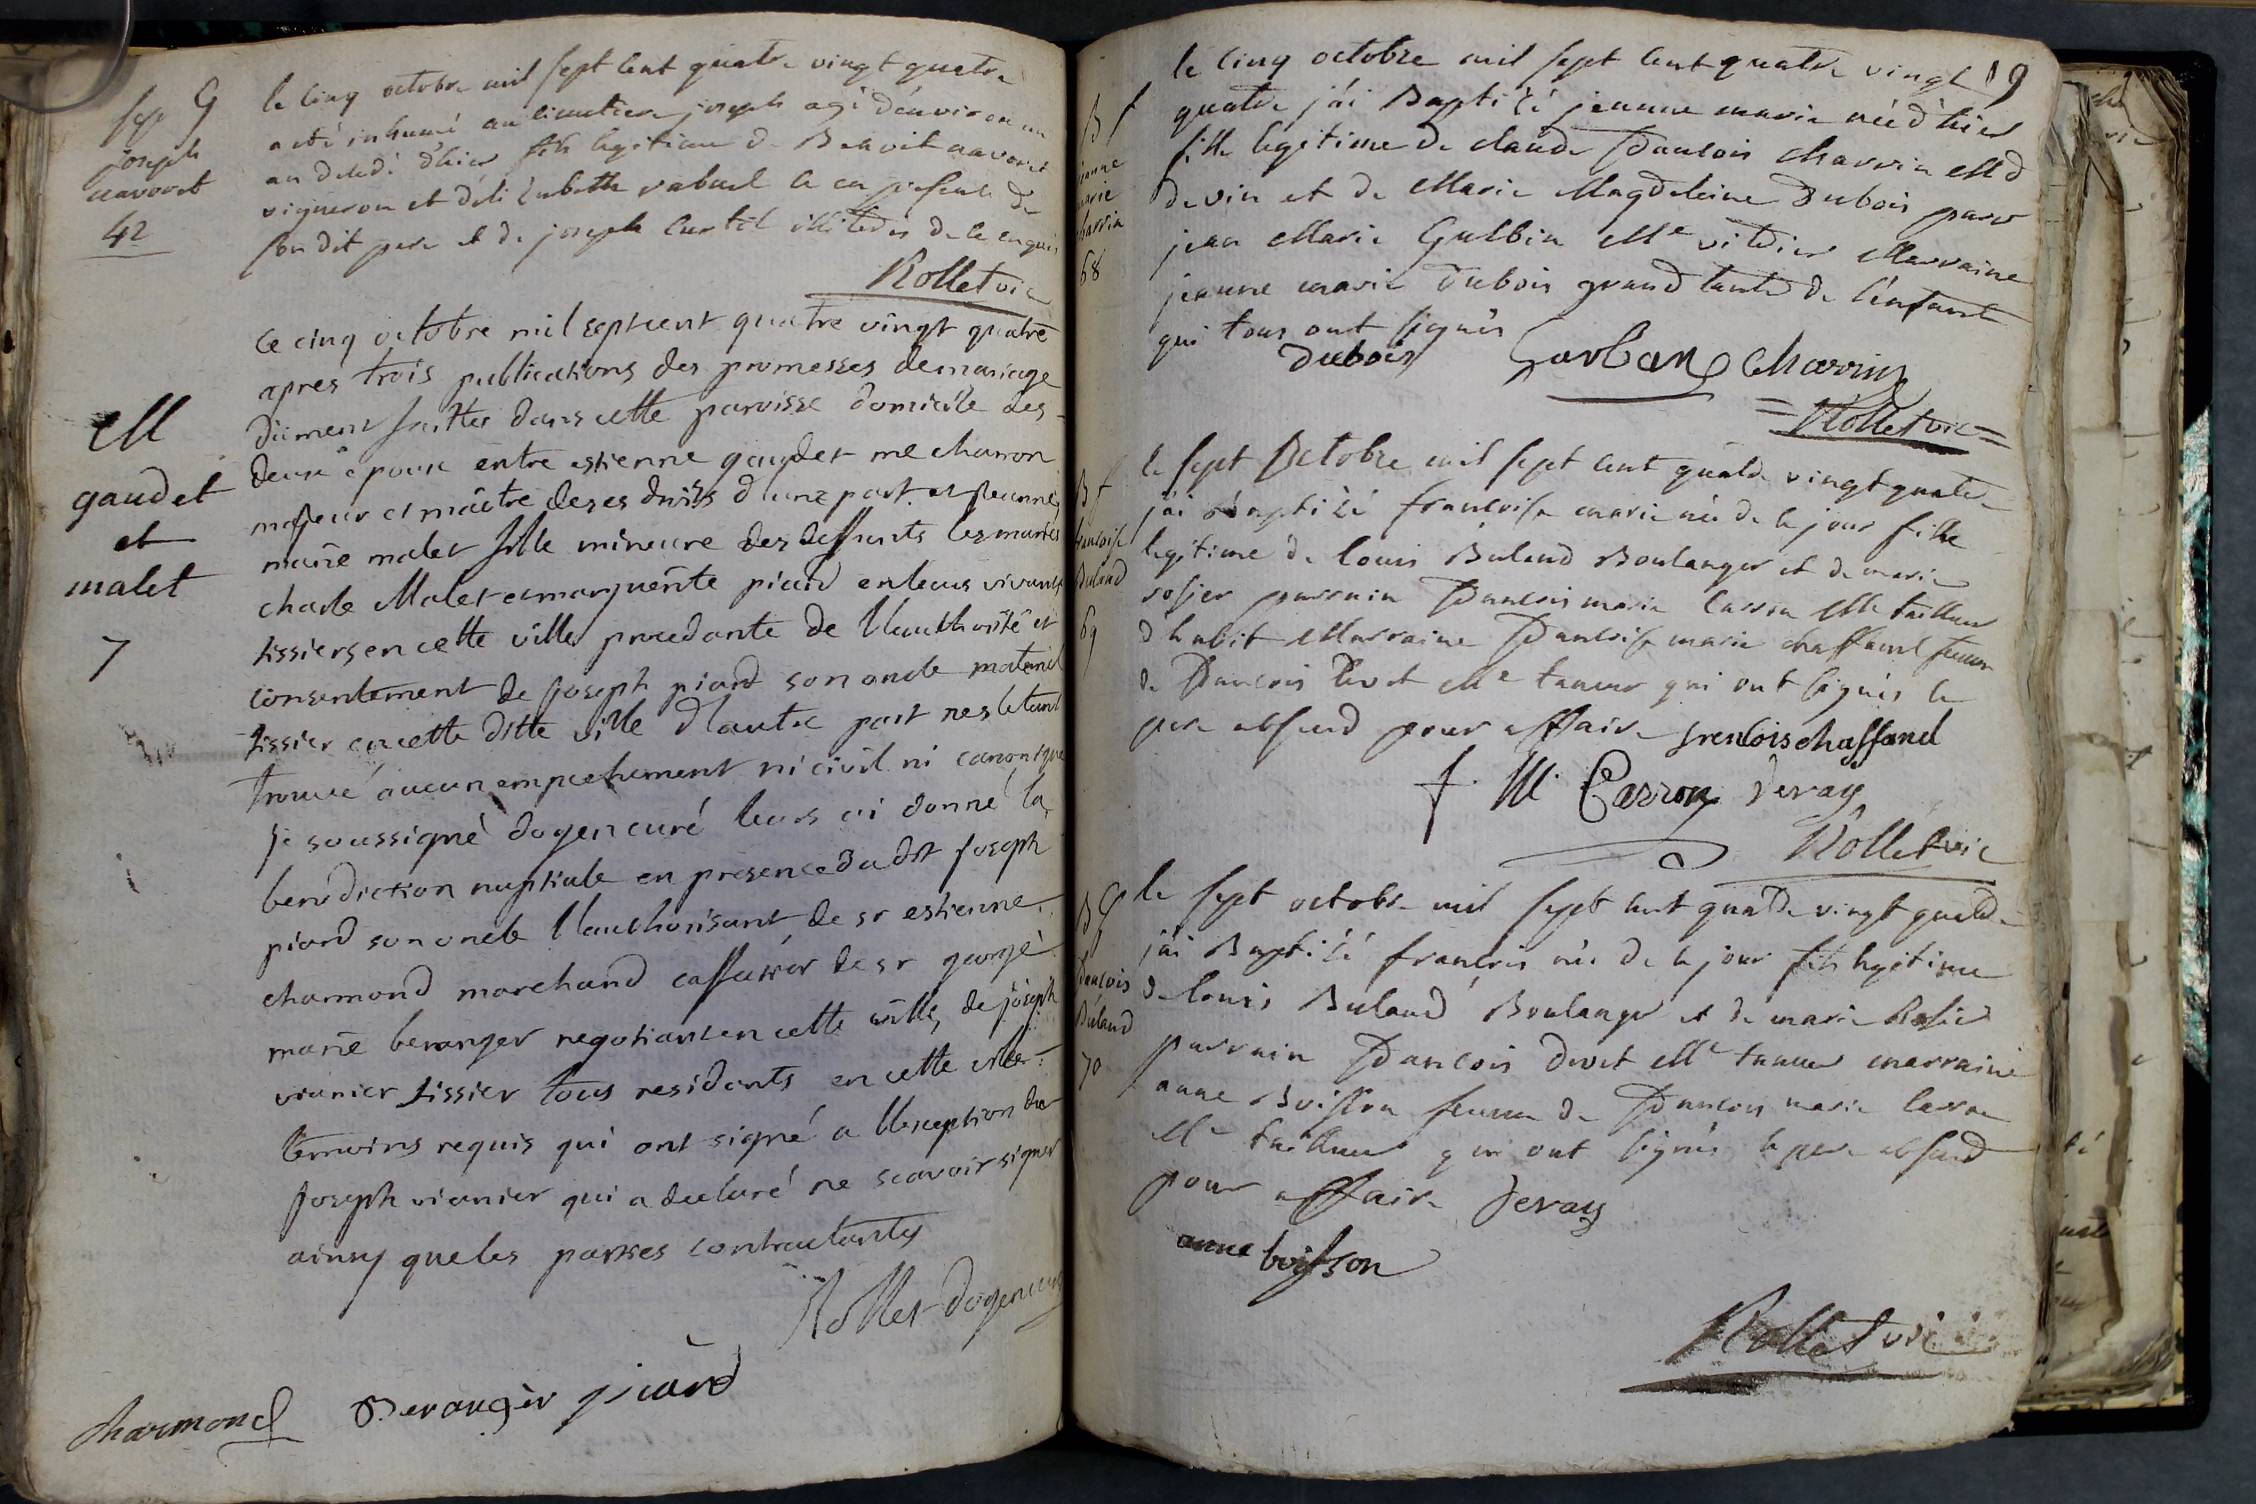 Sep G
joseph
navoret
42
le cinq octobre mil sept cent quatre vingt quatre
a eté inhumé au cimetiere joseph agé d'environ un
an decedé d'hier fils legitime de Benoit navoret
vigneron et d'elizabeth rabuel le en presence de
son dit pere et de joseph curtil illiterés de ce enquis
Rollet vic
M
gaudet
et
malet
7
Le cinq octobre mil sept cent quatre vingt quatre
apres trois publications des promesses de mariage
dûment faittes dans cette paroisse domicile des
deux epoux entre estienne gaudet me charron
majeur et maitre de ses droits d'une part et jeanne
marie malet fille mineure des deffunts les mariés
charle Malet et marguerite piard en leurs vivants
tissiers en cette ville procedante de l'authorité et
consentement de joseph piard son oncle maternel
tissier en cette ditte ville d'autre part ne s'etant
trouvé aucun empechement ni civil ni canonique
je soussigné doyen curé leurs ai donné la
benediction nuptiale en presence dudit joseph
piard son oncle l'authorisant, de sr estienne
charmond marchand caffatier de sr george
marie beranger negotiant en cette ville, de joseph
vianier tissier tous residants en cette ville
temoins requis qui ont signé a l'exception du
joseph vianier qui a declaré ne scavoir signer
ainsy que les parties contractantes
Rollet doyen curé
charmond Beranger piard
19
B f
jeanne
marie
charvin
68
le cinq octobre mil sept cent quatre vingt
quatre j'ai Baptizé jeanne marie née d'hier
fille legitime de claude françois charvin Md
de vin et de Marie Magdeleine Dubois parr
jean Marie Gulbin Me vitrier Marraine
jeanne marie Dubois grand tante de l'enfant
qui tous ont signés
Dubois Garban charvin
Rollet vic
B f
francoise
Buland
69
le sept octobre mil sept cent quatre vingt quatre
j'ai baptizé francoise marie née de ce jour fille
legitime de louis Buland Boulanger et de marie
rosier parrain francois marie carron Me tailleur
d'habit Marraine francoise marie chaffand femme
de francois Me tanneur qui ont signés le
pere absend pour affaire frencois chaffand
f. M. Carron Devay
Rollet vic
B G
francois
Buland
70
le sept octobre mil sept cent quatre vingt quatre
j'ai Baptizé francois né de ce jour fils legitime
de louis Buland Boulanger et de marie Rosier
parrain francois Me tanneur marraine
anne Boisson femme de francois marie carron
Me tailleur qui ont signés le pere absend
pour affaire Devay
anne boisson
Rollet vic